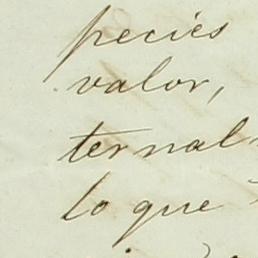 pecies
valor,
ternal-
lo que